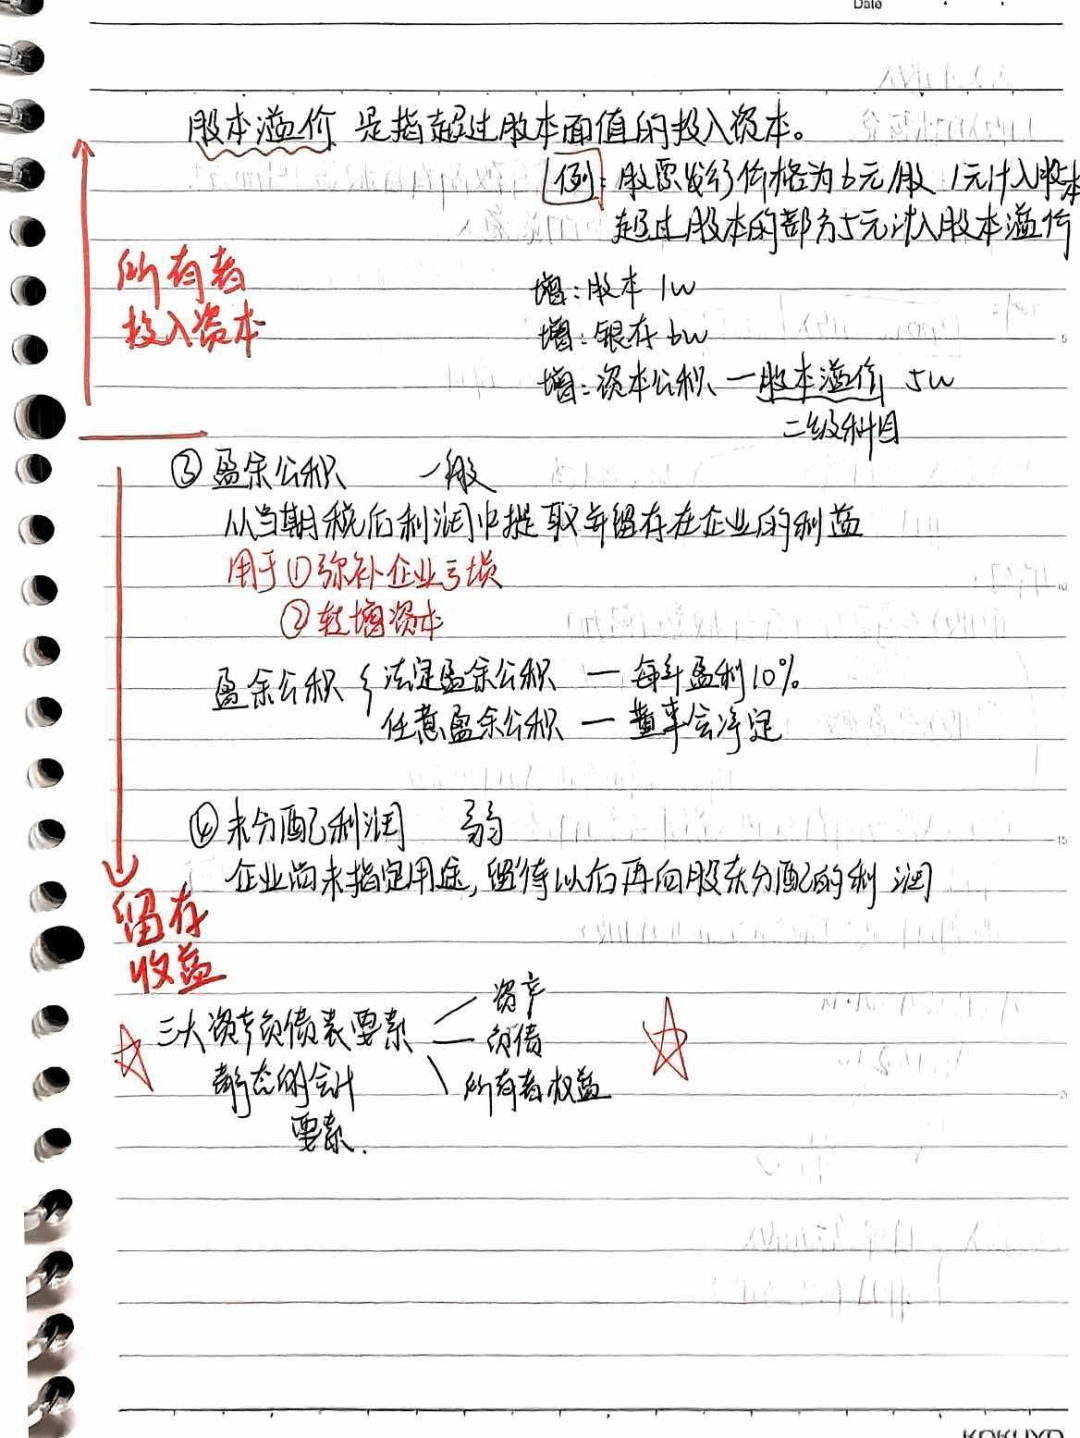 Date
股本溢价 是指超过股本面值的投入资本。
例: 股票发行价格为6元/股 1元计入股本
超过股本的部分5元计入股本溢价
所有者
投入资本
增:股本 1w
增:银存 6w
增:资本公积 — 股本溢价 5w
二级科目
③ 盈余公积 一般
从当期税后利润中提取并留存在企业的利益
用于①弥补企业亏损
②转增资本
盈余公积 { 法定盈余公积 — 每年盈利10%
任意盈余公积 — 董事会决定
④ 未分配利润 弱
企业尚未指定用途,留待以后再向股东分配的利润
留存
收益
资产
三大资产负债表要素 — 负债
静态的会计 所有者权益
要素.
KOKUYO